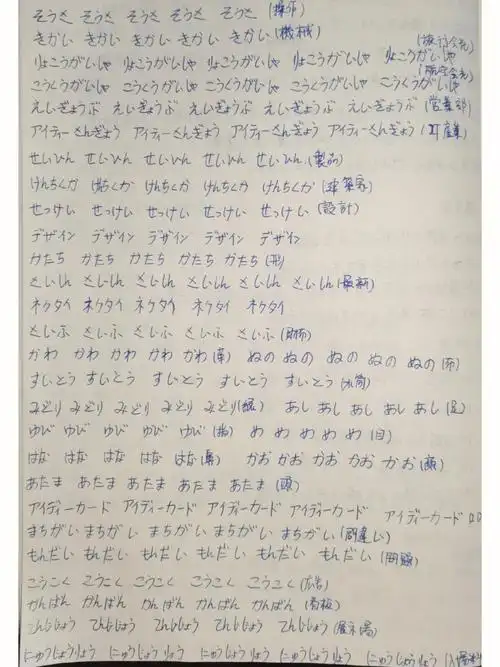 そうさ そうさ そうさ そうさ そうさ (操作)
きかい きかい きかい きかい きかい (機械)
りょこうがいしゃ りょこうがいしゃ りょこうがいしゃ りょこうがいしゃ (旅行会社)
こうくうがいしゃ こうくうがいしゃ こうくうがいしゃ こうくうがいしゃ こうくうがいしゃ (航空会社)
えいぎょうぶ えいぎょうぶ えいぎょうぶ えいぎょうぶ えいぎょうぶ (営業部)
アイティーさんぎょう アイティーさんぎょう アイティーさんぎょう アイティーさんぎょう (IT産業)
せいひん せいひん せいひん せいひん せいひん (製品)
けんちくか けんちくか けんちくか けんちくか けんちくか (建築家)
せっけい せっけい せっけい せっけい せっけい (設計)
デザイン デザイン デザイン デザイン デザイン
かたち かたち かたち かたち かたち (形)
さいしん さいしん さいしん さいしん さいしん さいしん (最新)
ネクタイ ネクタイ ネクタイ ネクタイ ネクタイ
さいふ さいふ さいふ さいふ さいふ (財布)
かわ かわ かわ かわ かわ (革) ぬの ぬの ぬの ぬの ぬの (布)
すいとう すいとう すいとう すいとう すいとう (水筒)
みどり みどり みどり みどり みどり (緑) あし あし あし あし あし (足)
ゆび ゆび ゆび ゆび ゆび (指) め め め め め (目)
はな はな はな はな はな (鼻) かお かお かお かお かお (顔)
あたま あたま あたま あたま あたま (頭)
アイディーカード アイディーカード アイディーカード アイディーカード アイディーカード
まちがい まちがい まちがい まちがい まちがい (間違い)
もんだい もんだい もんだい もんだい もんだい もんだい (問題)
こうこく こうこく こうこく こうこく こうこく (広告)
かんばん かんばん かんばん かんばん かんばん (看板)
てんじじょう てんじじょう てんじじょう てんじじょう てんじじょう (展示場)
にゅうじょうりょう にゅうじょうりょう にゅうじょうりょう にゅうじょうりょう にゅうじょうりょう (入場料)